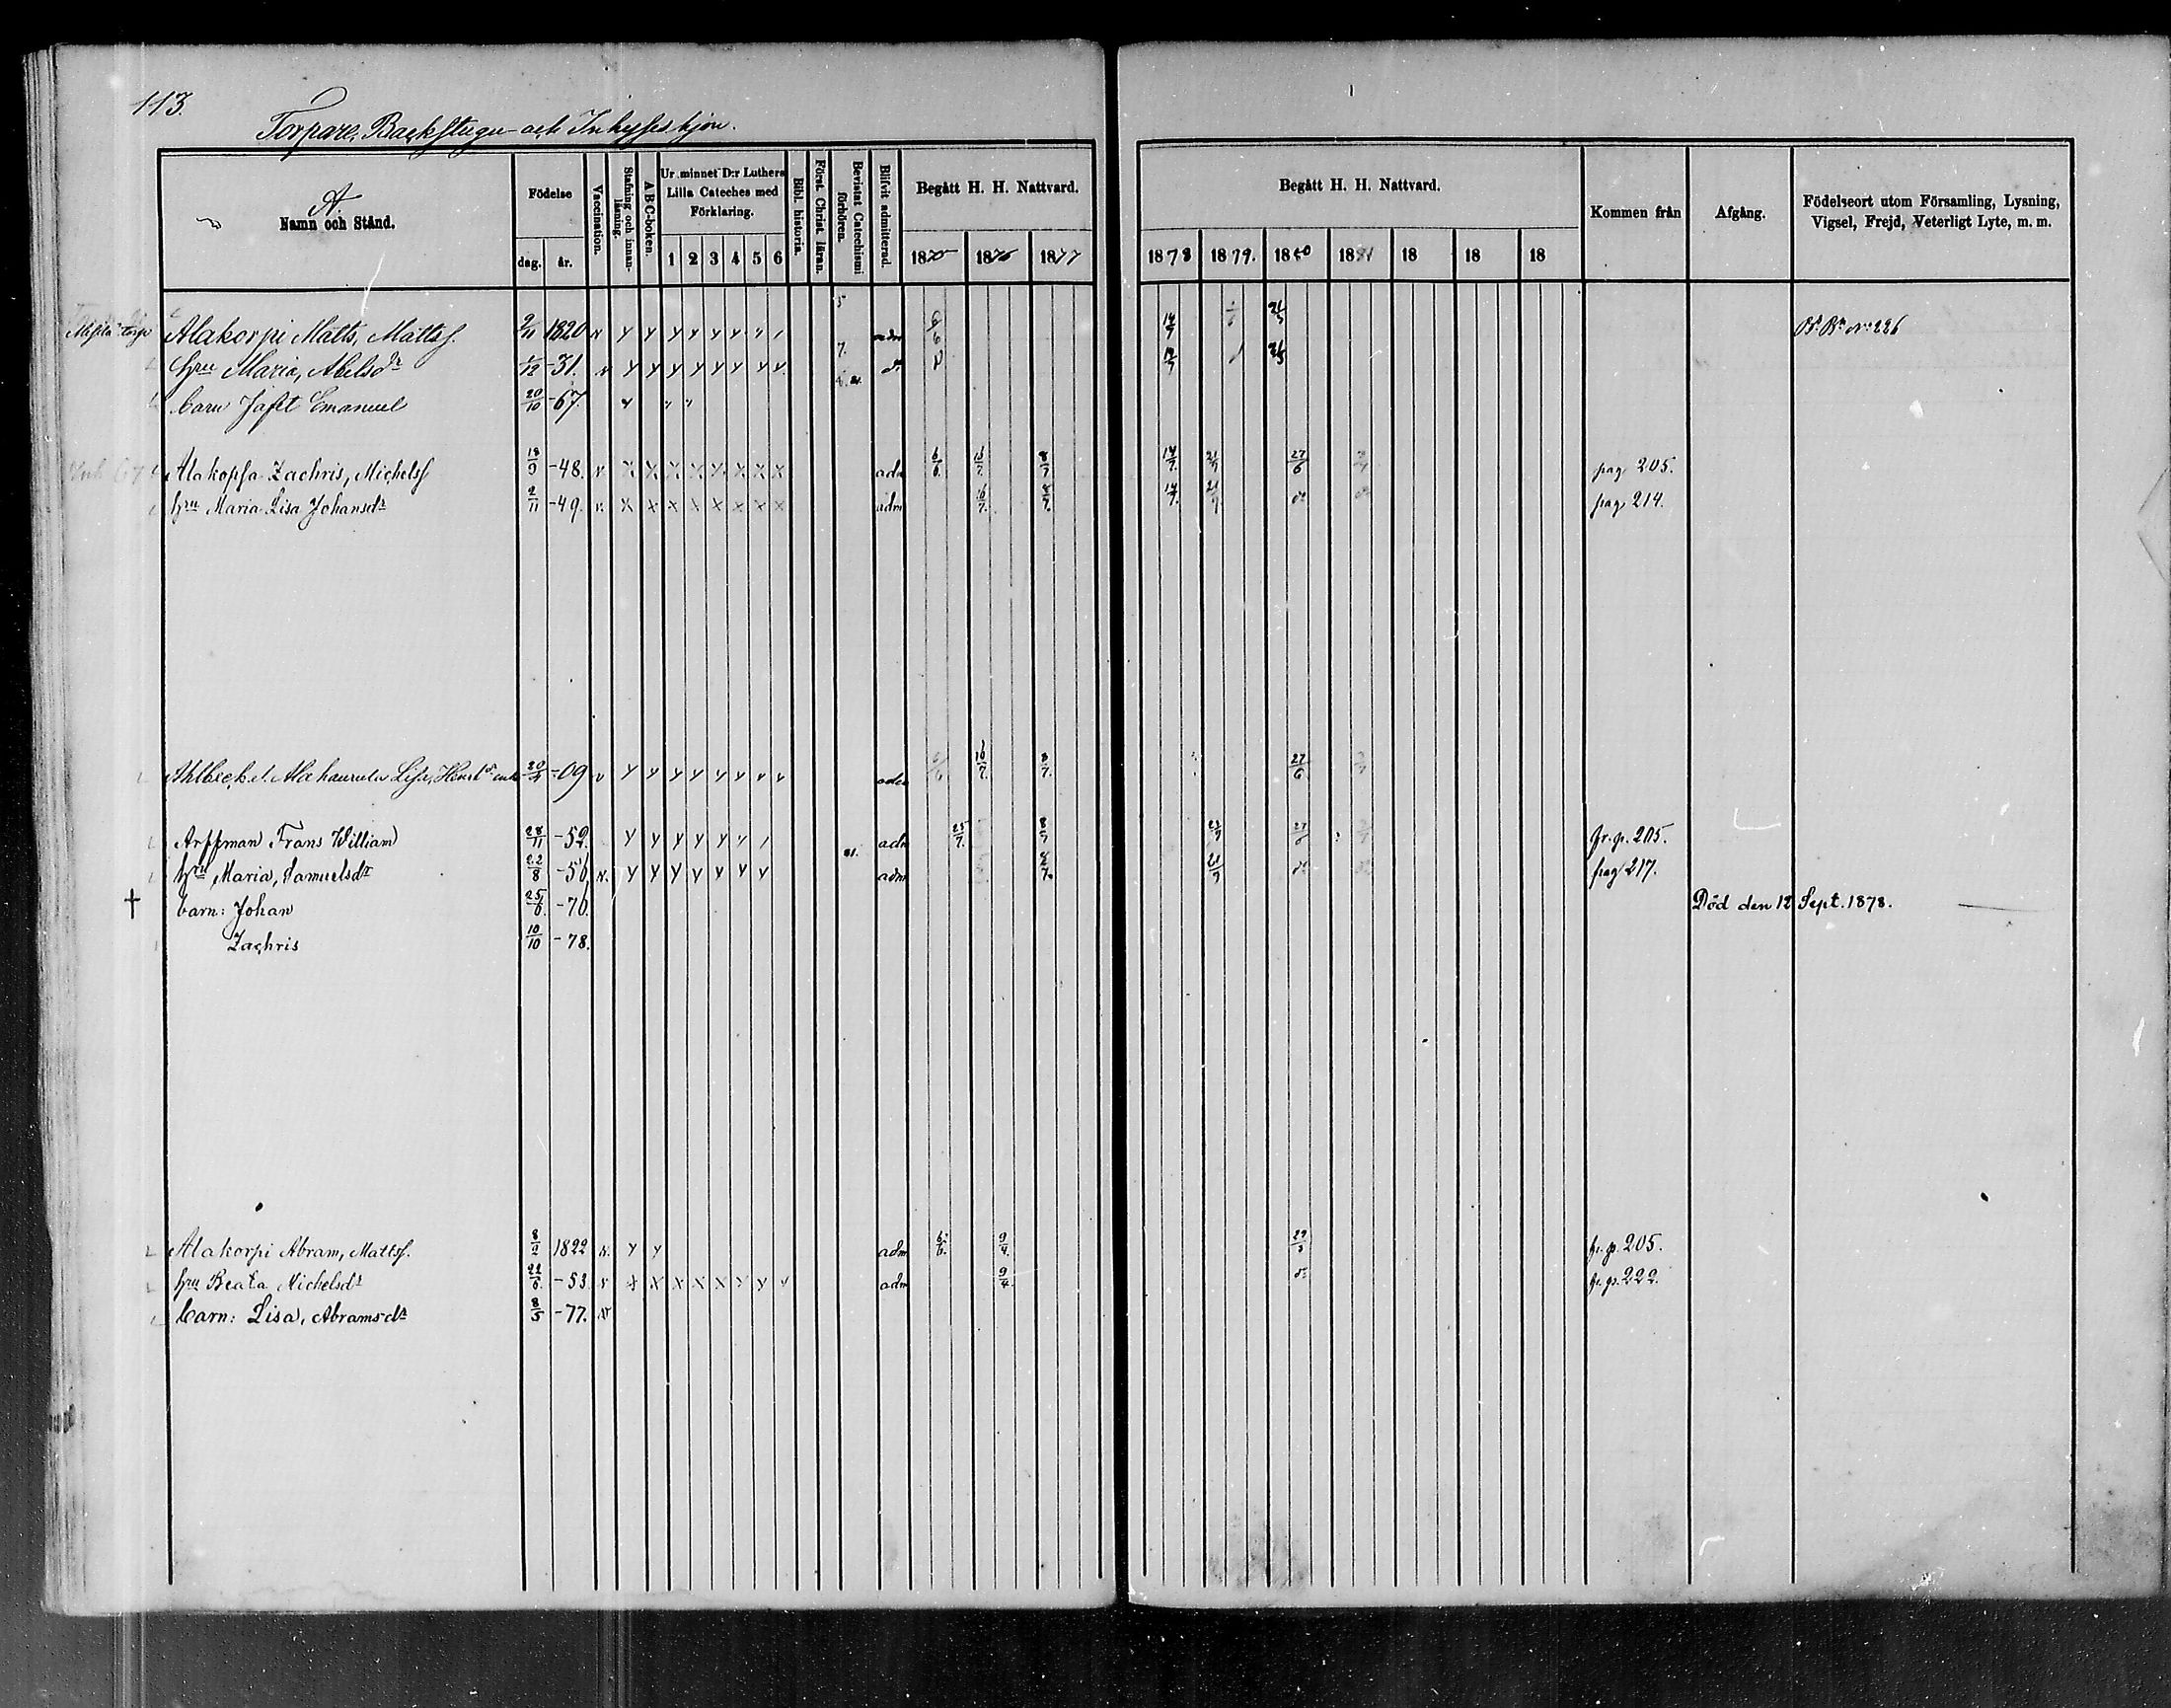 113.
Torpare, Backstugu- och Inhyses hjon.
A.
Namn och Stånd.
Födelse
dag. år.
Vaccination.
Stafning och innanläsning.
A B C-boken.
Ur minnet D:r Luthers Lilla Cateches med Förklaring.
1 2 3 4 5 6
Bibl. historia.
Först. Christ. läran.
Bevistat Catechismi förhören.
Blifvit admitterad.
Begått H. H. Nattvard.
1875 1876 1877
Begått H. H. Nattvard.
1878 1879. 1880 1881 18 18 18
Kommen från
Afgång.
Födelseort utom Församling, Lysning, Vigsel, Frejd, Veterligt Lyte, m. m.
Alakorpi Matts, Mattsf. 2/11 1820 adm 14/7 21/5 No 226
hru Maria, Abelsdr 1/12 -31. do 14/7 21/5
barn Jafet Emanuel 20/10 -67.
Alakopsa Zachris, Michelsf 18/9 -48. adm 6/6. 16/7. 8/7 14/7. 21/7 27/6 pag 205.
hru Maria Lisa Johansdr 2/11 -49. adm 16/7. 8/7. 14/7. 21/7 do pag 214.
Ahlbeck el. Alahaurula Lisa, Henrdr enka 20/4 -09 adm 16/7. 8/7. 27/6
Arffman Frans William 28/11 -52. adm 25/7. 8/7 27/6 fr. p. 205.
hru Maria, Samuelsdr 22/8 -56 adm 8/7. 21/7 do pag 217.
† barn: Johan 25/6. -76. Död den 12 Sept. 1878.
Zachris 10/10 -78.
Alakorpi Abram, Mattsf. 8/2 1822 adm 6/6. 9/4. 29/3 fr. p. 205.
hru Beata Michelsdr 22/6. -53. adm 9/4. do fr. p. 222.
barn: Lisa, Abramsdr 8/5 -77.